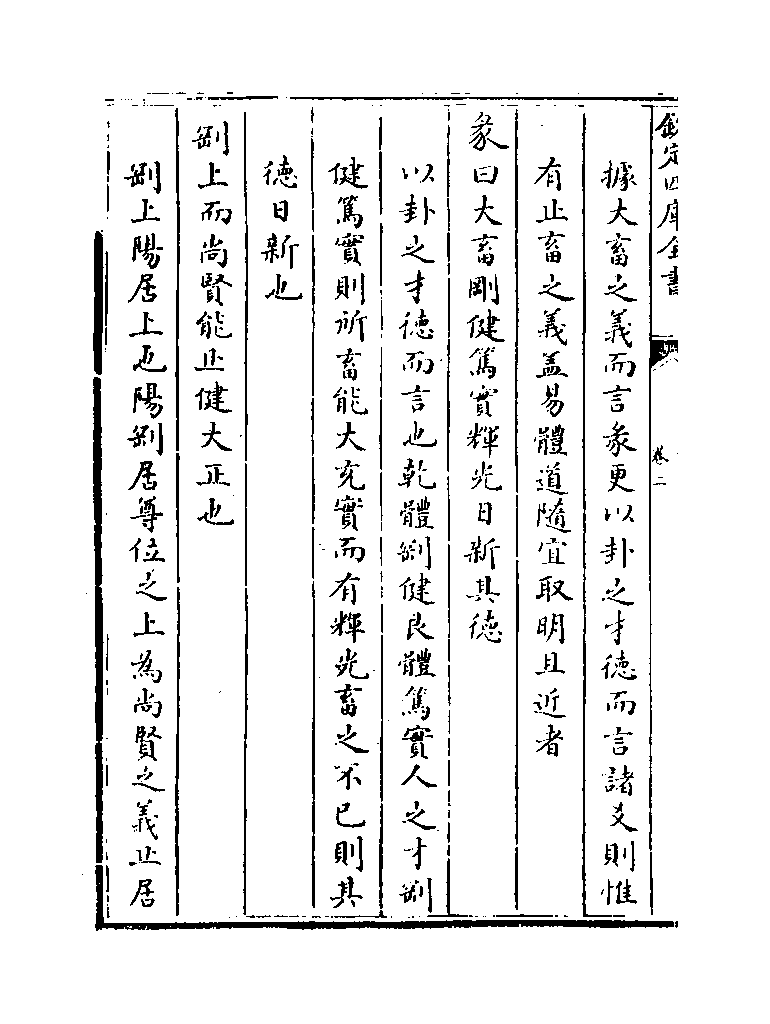 欽定四庫全書
卷二
據大畜之義而言彖更以卦之才徳而言諸爻則惟
有止畜之義盖易體道隨宜取明且近者
彖曰大畜剛健篤實輝光日新其徳
以卦之才徳而言也乾體剛健艮體篤實人之才剛
健篤實則所畜能大充實而有輝光畜之不已則其
徳日新也
剛上而尚賢能止健大正也
剛上陽居上也陽剛居尊位之上為尚賢之義止居